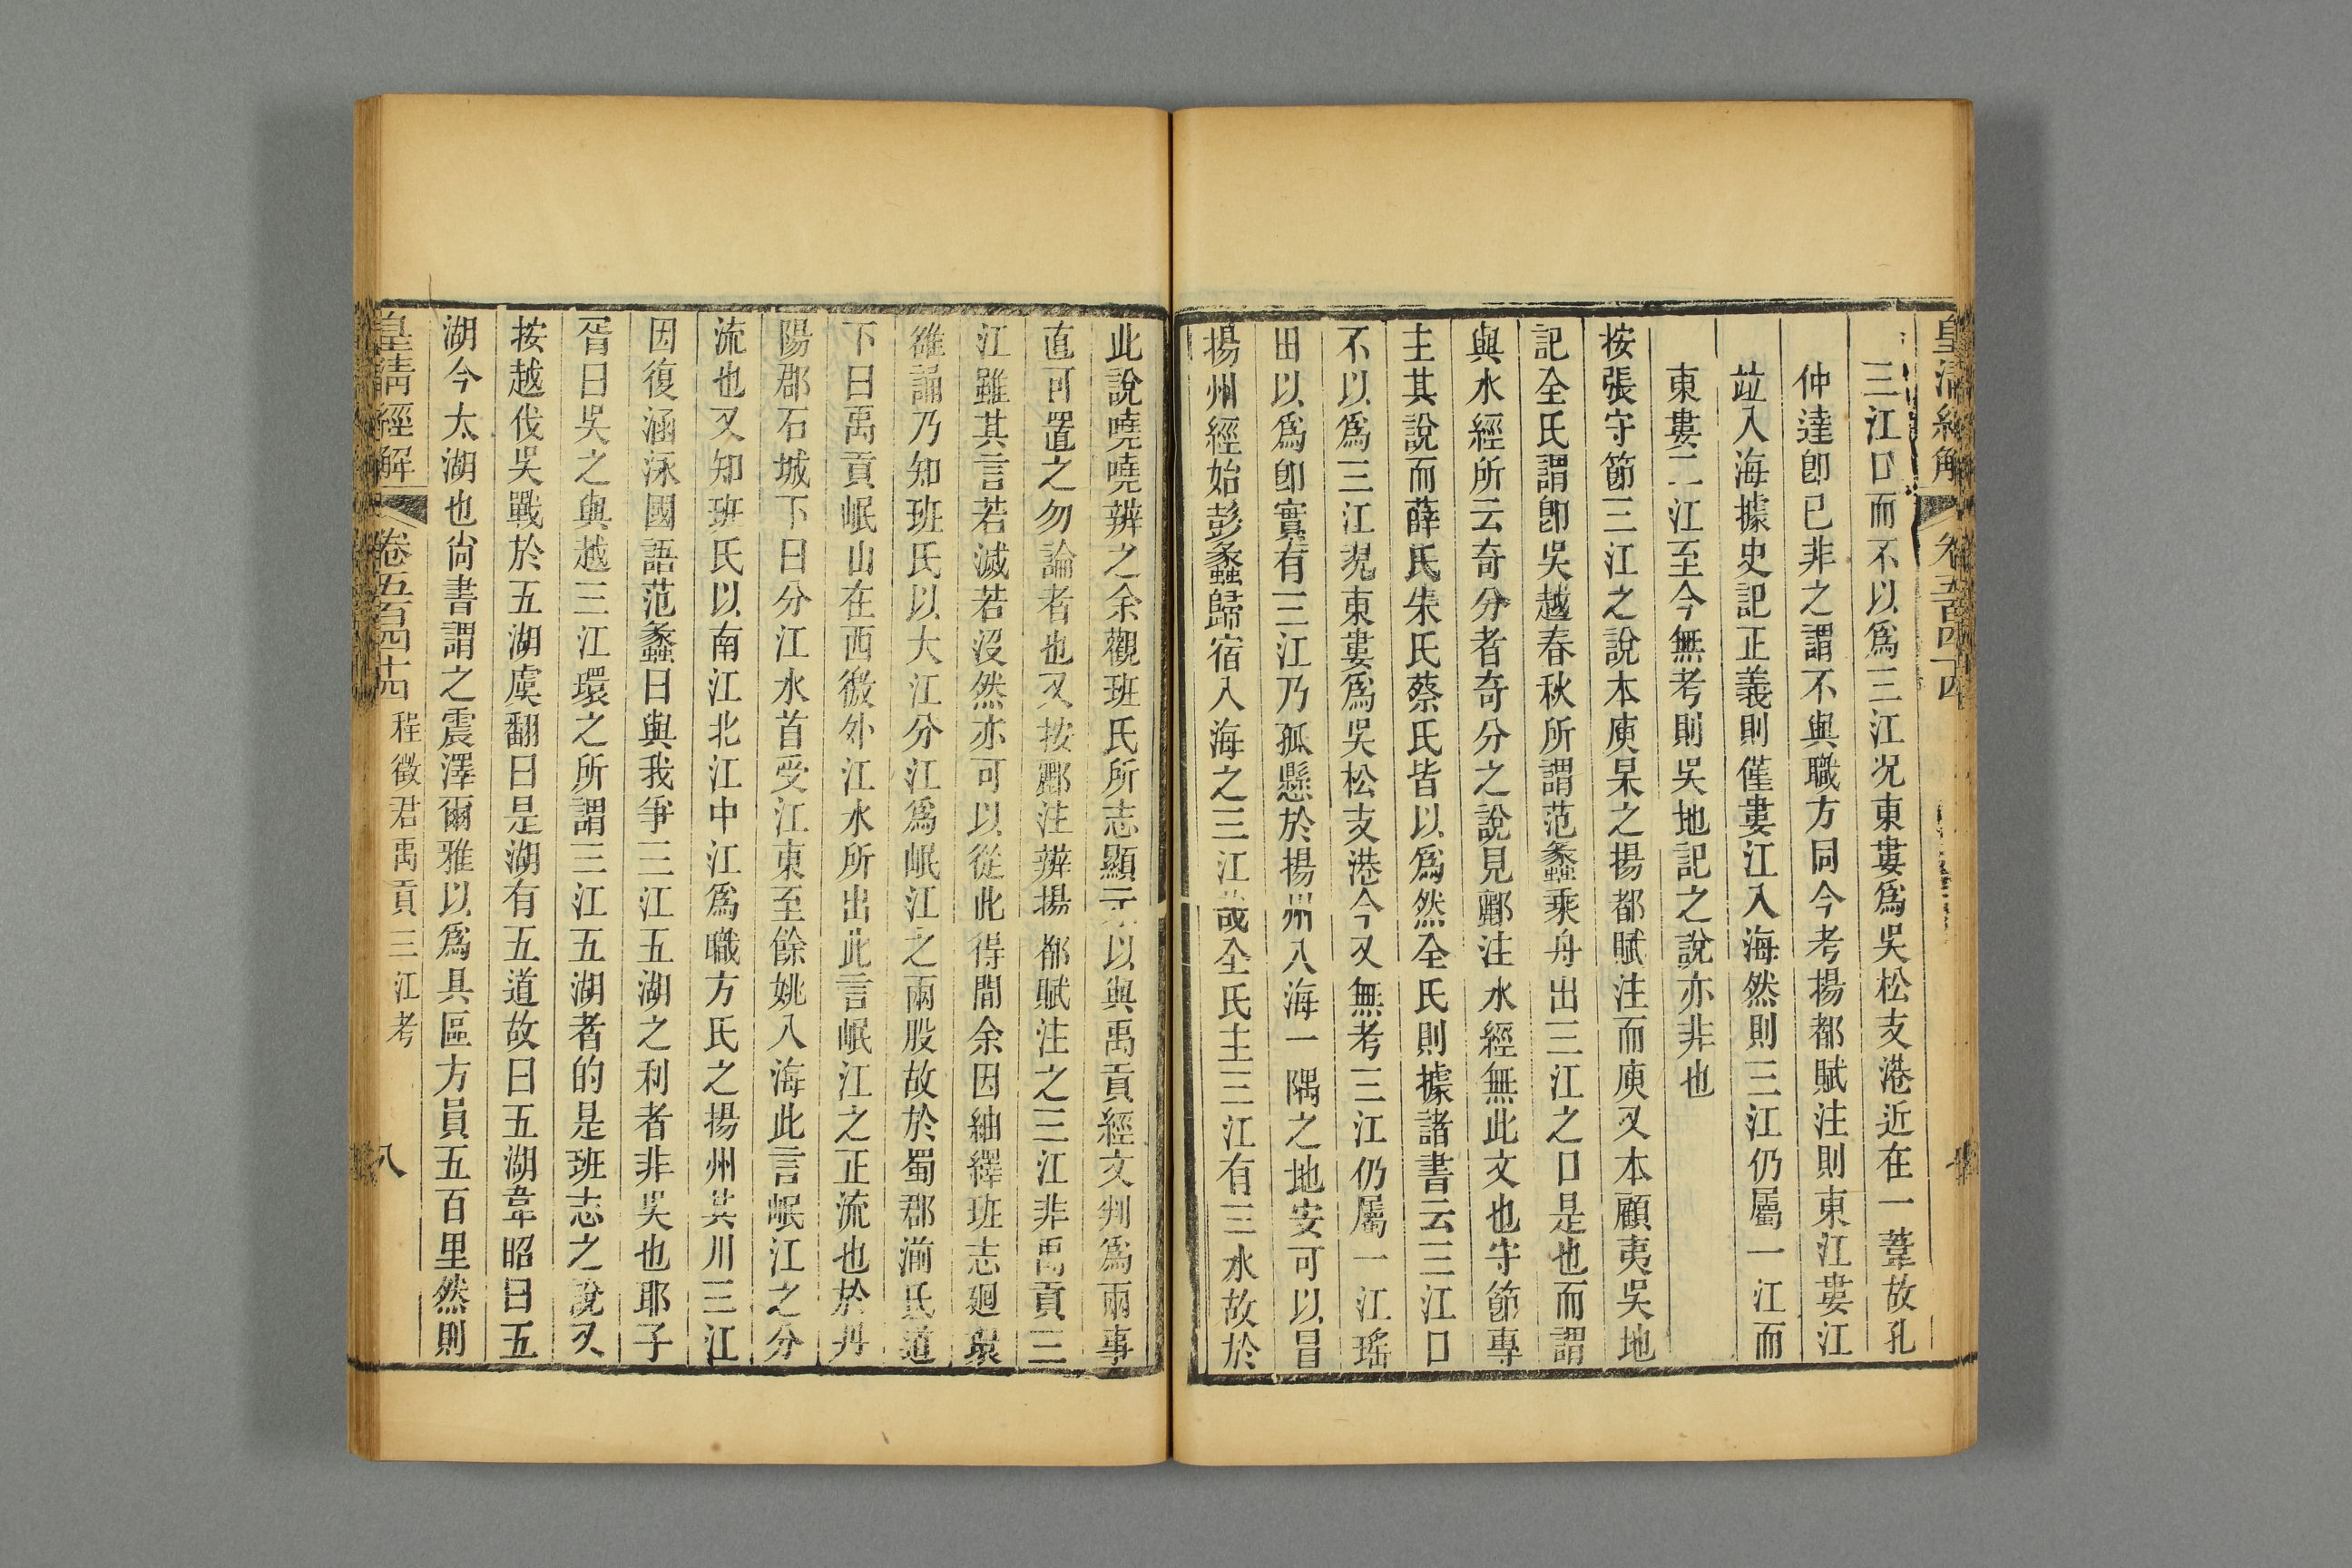 皇清經解
三江口而不以爲三江况東婁爲吳松支港近在一葦故孔
仲達卽已非之謂不與職方同今考揚都賦注則東江婁江
竝入海據史記正義則僅婁江入海然則三江仍屬一江而
東婁二江至今無考則吳地記之說亦非也
按張守節三江之說本庾杲之揚都賦注而庾又本顧夷吳地
記全氏謂卽吳越春秋所謂范蠡乘舟出三江之口是也而謂
與水經所云奇分者奇分之說見酈注水經無此文也守節專
主其說而薛氏朱氏蔡氏皆以爲然全氏則據諸書云三江口
不以爲三江况東婁爲吳松支港今又無考三江仍屬一江瑤
田以爲卽實有三江乃孤懸於揚州入海一隅之地安可以冒
揚州經始彭蠡歸宿入海之三江哉全氏主三江有三水故於
此說嘵嘵辨之余觀班氏所志顯示以與禹貢經文判爲兩事
直可置之勿論者也又按酈注辨揚都賦注之三江非禹貢三
江雖其言若滅若沒然亦可以從此得間余因紬繹班志廻環
雒誦乃知班氏以大江分江爲岷江之兩股故於蜀郡湔氐道
下曰禹貢岷山在西徼外江水所出此言岷江之正流也於丹
陽郡石城下曰分江水首受江東至餘姚入海此言岷江之分
流也又知班氏以南江北江中江爲職方氏之揚州其川三江
因復涵泳國語范蠡曰與我爭三江五湖之利者非吳也耶子
胥曰吳之與越三江環之所謂三江五湖者的是班志之說又
按越伐吳戰於五湖虞翻曰是湖有五道故曰五湖韋昭曰五
湖今太湖也尙書謂之震澤爾雅以爲具區方員五百里然則
皇清經解 卷五百四十四 程徵君禹貢三江考 八